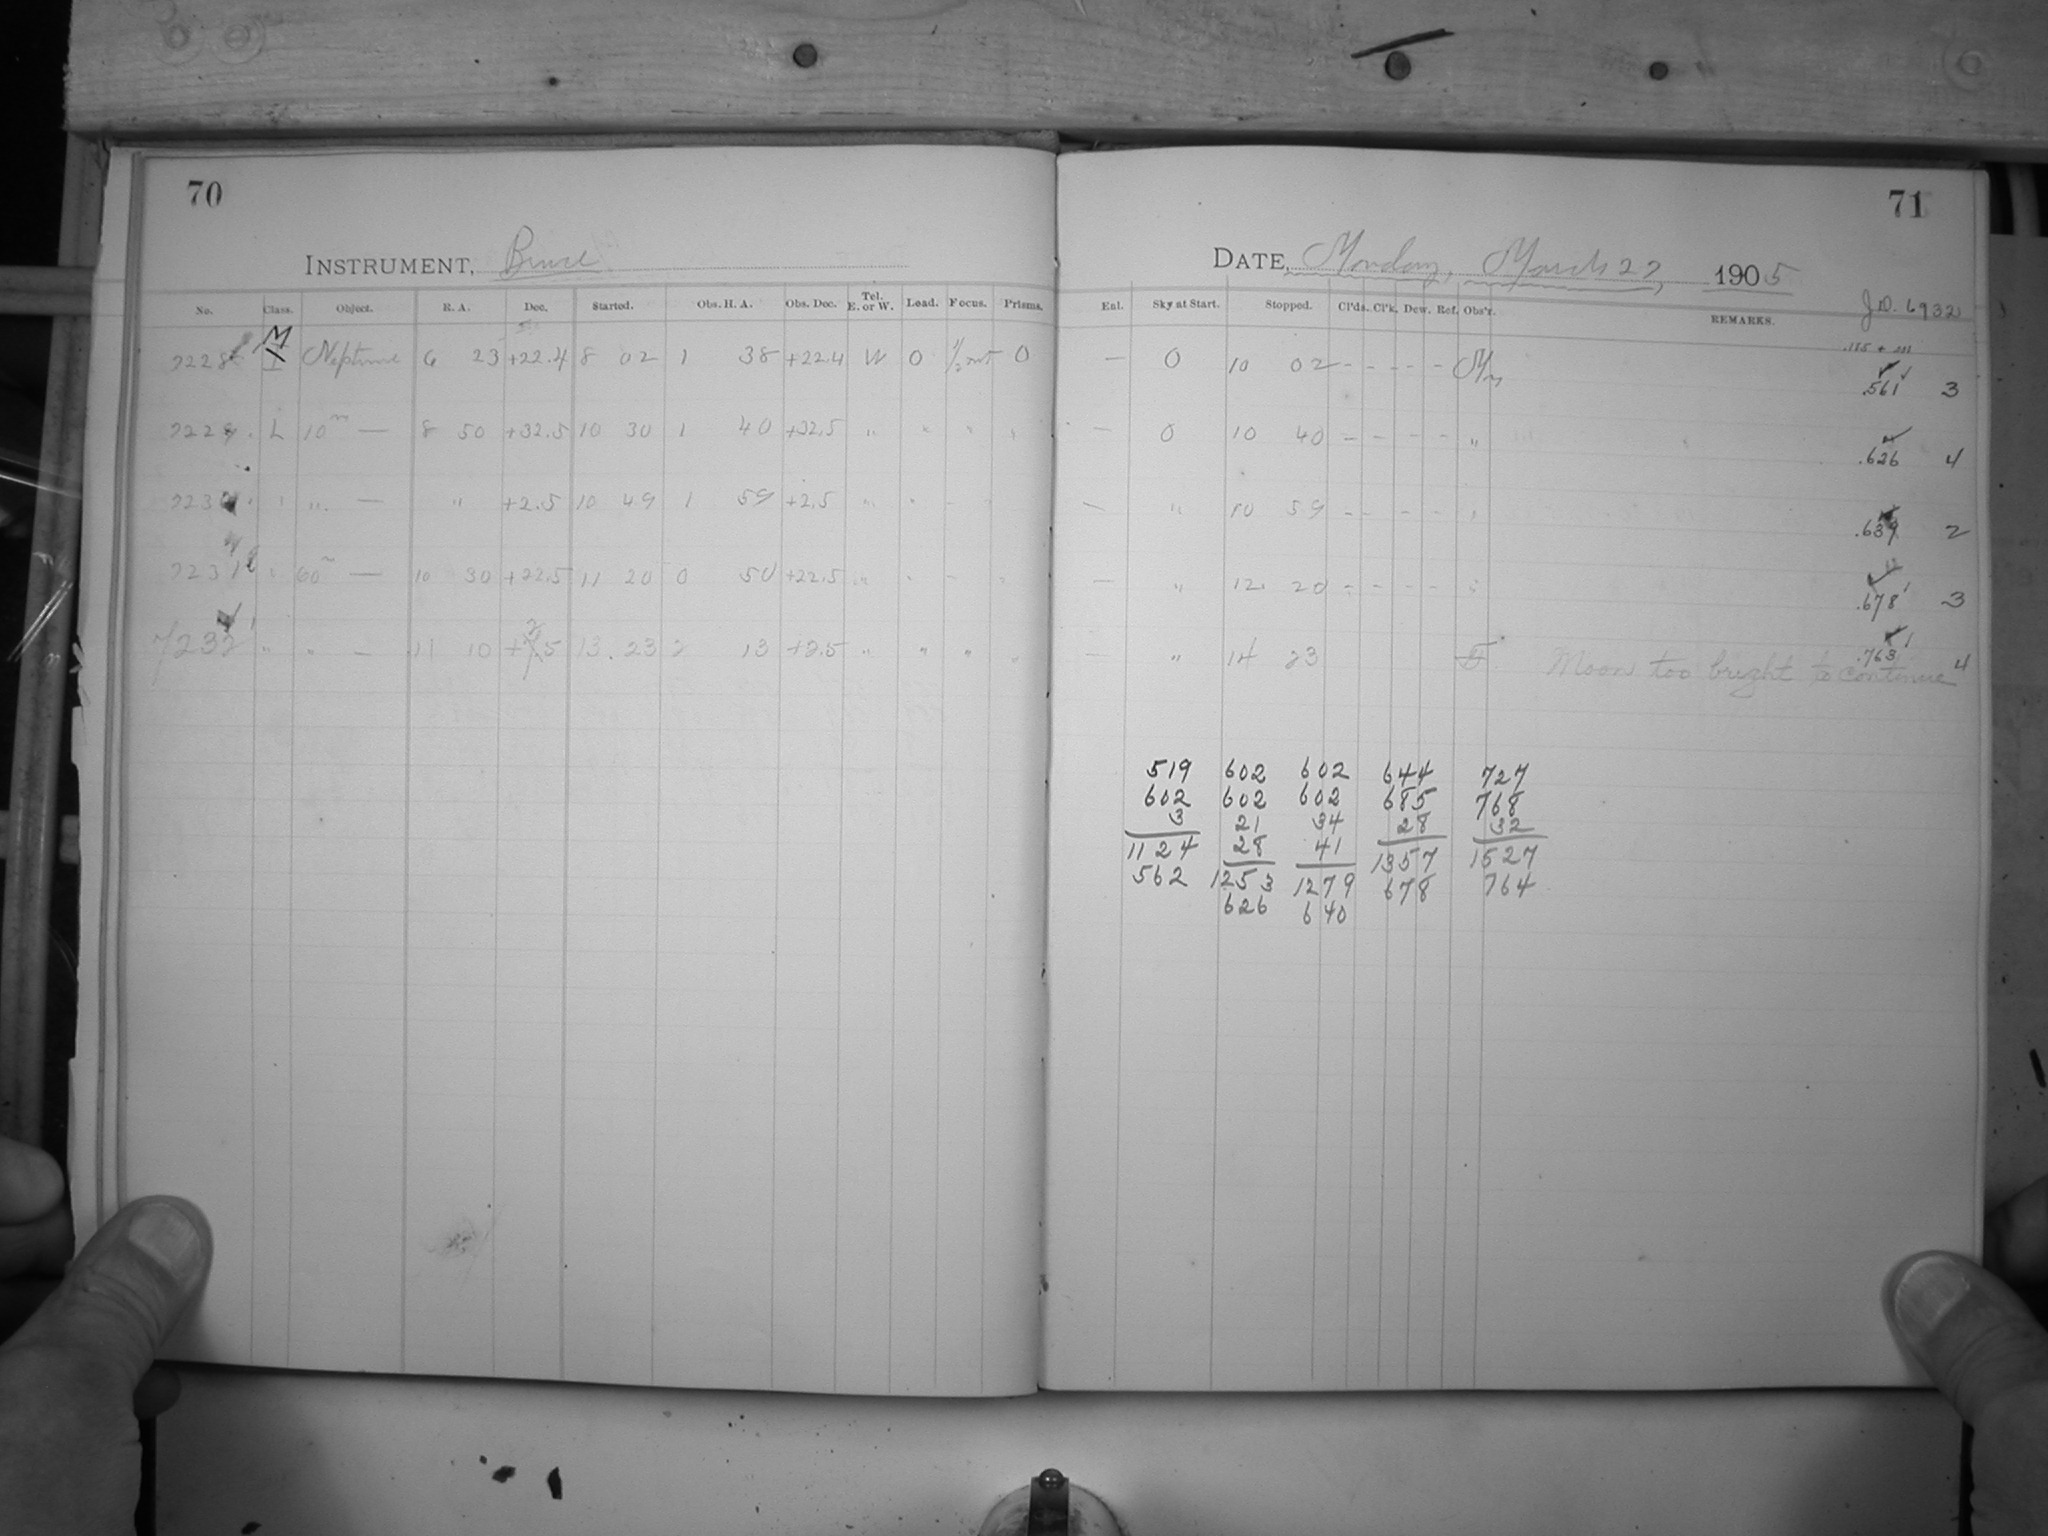 70
INSTRUMENT, Bruce
No. Class. Object. R. A. Dec. Started. Obs. H. A. Obs. Dec. Tel. E. or W. Load. Focus. Prisms.
7228 M I Neptune 6 23 +22.4 8 02 1 38 +22.4 W 0 1/2 out 0
7229 L 10m — 8 50 +32.5 10 30 1 40 +32.5 " " " "
7230 " " — " +2.5 10 49 1 59 +2.5 " " - -
7231 " 60m — 10 30 +22.5 11 20 0 50 +22.5 " " - "
7232 " " — 11 10 +2.5 13 23 2 13 +2.5 " " " "
71
DATE, Monday, March 27, 1905
J.D. 6932
Enl. Sky at Start. Stopped. Cl'ds. Cl'k. Dew. Ref. Obs'r. REMARKS.
— 0 10 02 - - - - - .561 3
— 0 10 40 - - - - " .626 4
— " 10 59 - - - - " .639 2
— " 12 20 - - - - " .678 3
— " 14 23 Moon too bright to continue .763 4
519 602 602 644 727
602 602 602 685 768
3 21 34 28 32
1124 28 41 1357 1527
562 1253 1279 678 764
626 640